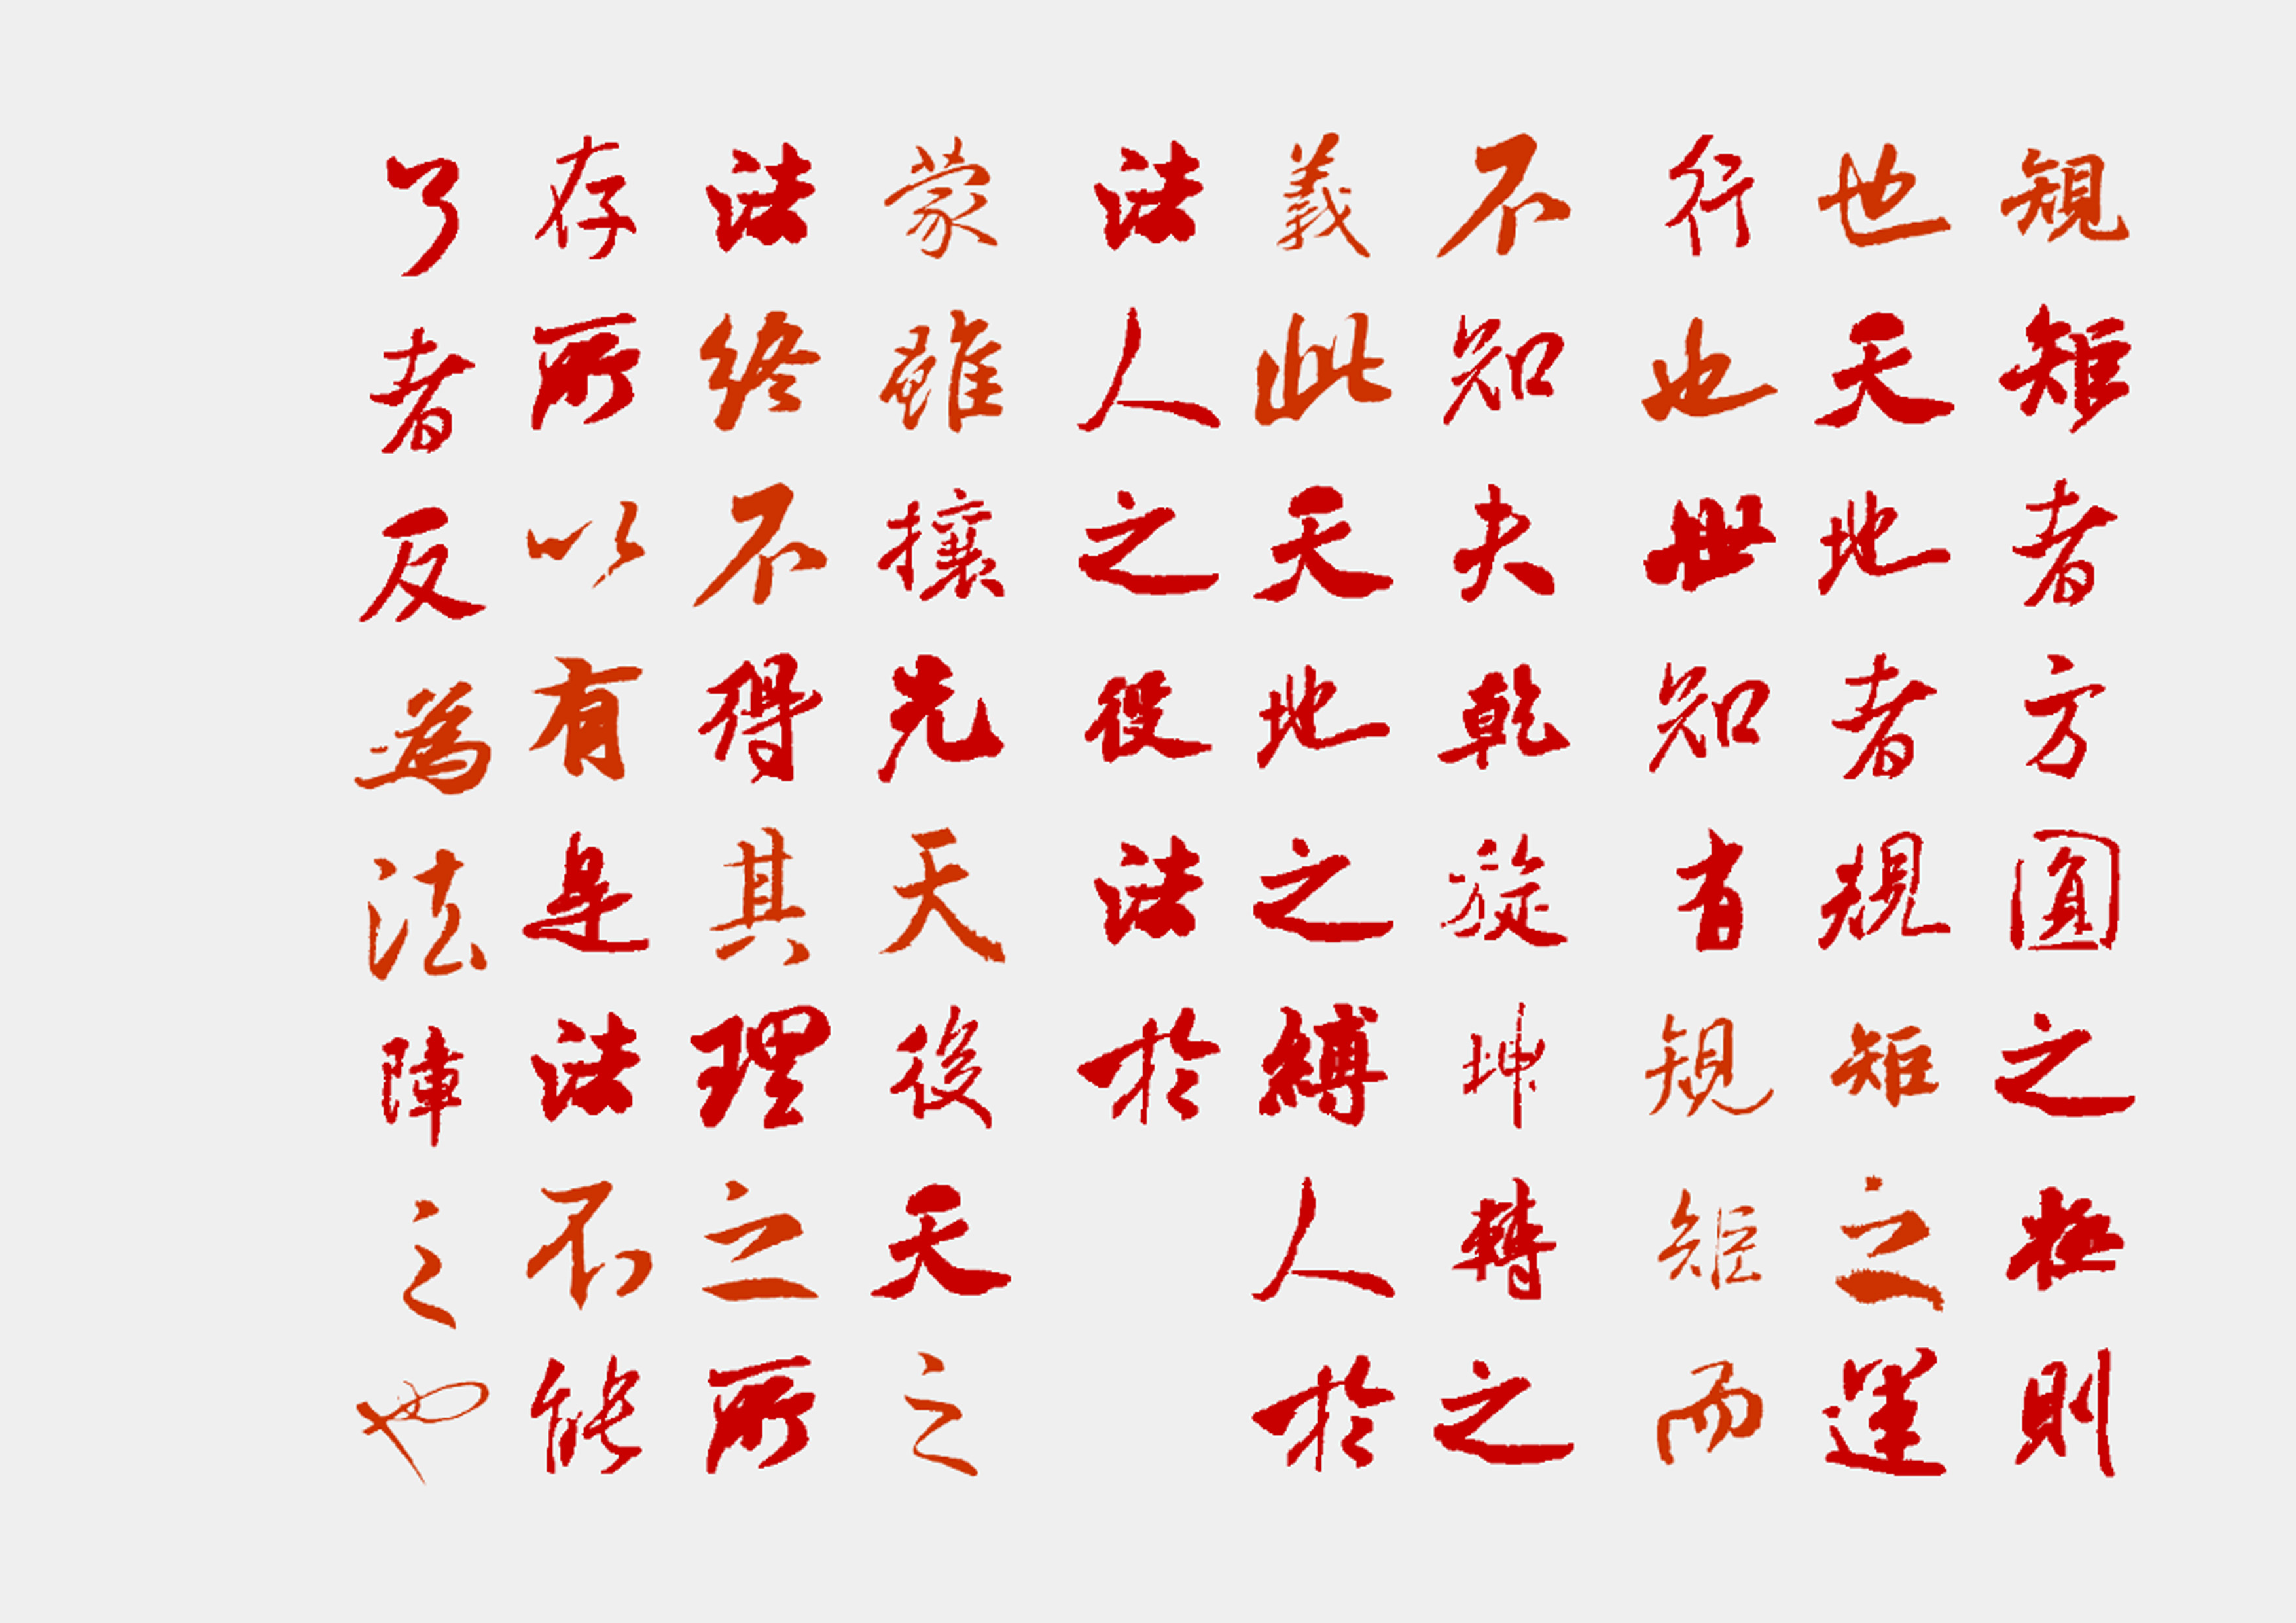 規矩者方圓之極則
也天地者規矩之運
行也世知有規矩而
不知夫乾旋坤轉之
義此天地之縛人於
法人之役法於
蒙雖攘先天後天之
法終不得其理之所
存所以有是法不能
了者反為法障之也